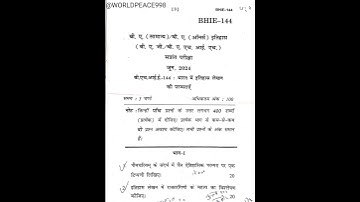 @WORLDPEACE998
BHIE-144
BHIE-144
बी. ए. (सामान्य)/बी. ए. (ऑनर्स) इतिहास
(बी. ए. जी./बी. ए. एच. आई. एच.)
सत्रांत परीक्षा
जून, 2024
बी.एच.आई.ई.-144 : भारत में इतिहास लेखन
की परम्पराएँ
समय : 3 घण्टे
अधिकतम अंक : 100
नोट : किन्हीं पाँच प्रश्नों के उत्तर लगभग 400 शब्दों
(प्रत्येक) में दीजिए। प्रत्येक भाग से कम-से-कम
दो प्रश्न अवश्य कीजिए। सभी प्रश्नों के अंक समान
हैं।
भाग-I
के संदर्भ में जैन ऐतिहासिक परम्परा पर एक
टिप्पणी लिखिए।
20
इतिहास लेखन में राजतरंगिणी के महत्व का विश्लेषण
कीजिए।
20